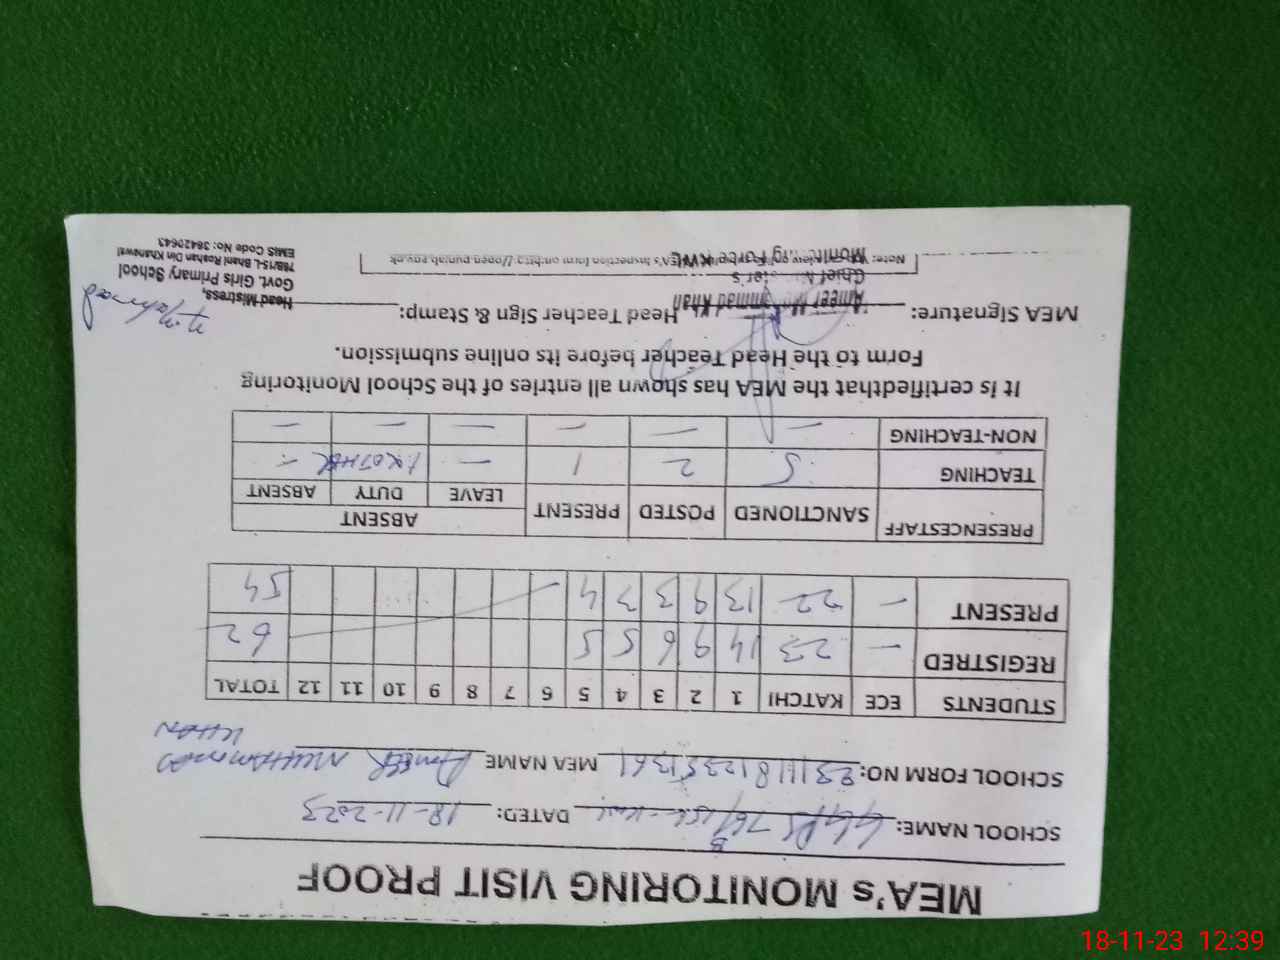 MEA's MONITORING VISIT PROOF
SCHOOL NAME: GGPS 76B/15L-Kwl DATED: 18-11-2023
SCHOOL FORM NO: 23111812351361 MEA NAME AMEER MUHAMMAD KHAN
STUDENTS ECE KATCHI 1 2 3 4 5 6 7 8 9 10 11 12 TOTAL
REGISTRED — 23 14 9 6 5 5 62
PRESENT — 22 13 9 3 3 4 54
PRESENCESTAFF SANCTIONED POSTED PRESENT ABSENT
LEAVE DUTY ABSENT
TEACHING 5 2 1 — 1 —
NON-TEACHING — — — — — —
It is certifiedthat the MEA has shown all entries of the School Monitoring
Form to the Head Teacher before its online submission.
MEA Signature: Head Teacher Sign & Stamp:
Ameer Muhammad Khan
Chief Minister's
Monitoring Force KWL
Head Mistress,
Govt. Girls Primary School
76B/15-L Bhani Roshan Din Khanewal
EMIS Code No: 36420643
Note: MEA's Inspection form on http://open.punjab.gov.pk
18-11-23 12:39